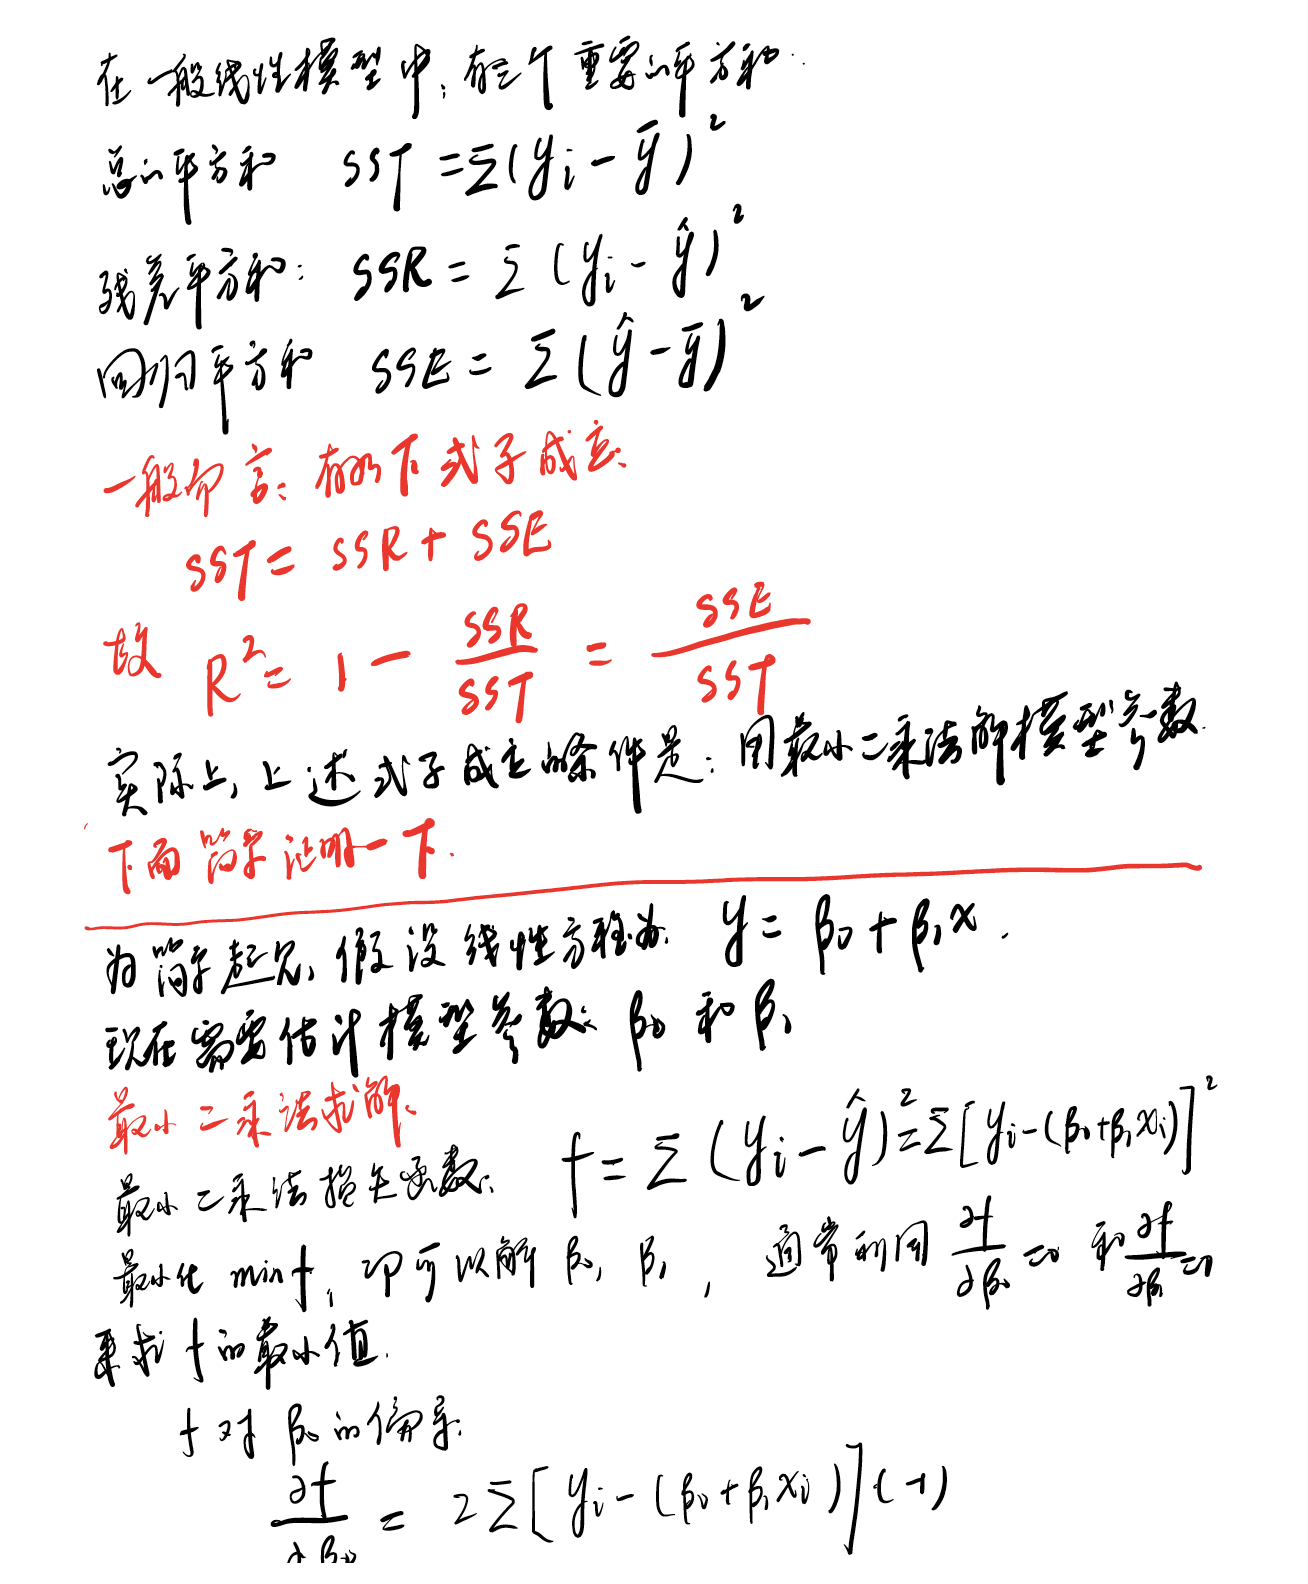 在一般线性模型中，有三个重要的平方和.
总的平方和 SST = Σ(yi - ȳ)²
残差平方和: SSR = Σ(yi - ŷ)²
回归平方和 SSE = Σ(ŷ - ȳ)²
一般而言: 有如下式子成立:
SST = SSR + SSE
故 R² = 1 - SSR/SST = SSE/SST
实际上, 上述式子成立的条件是: 用最小二乘法解模型参数.
下面简单证明一下.
为简单起见, 假设线性方程为: y = β0 + β1x.
现在需要估计模型参数: β0 和 β1
最小二乘法求解:
最小二乘法损失函数: f = Σ(yi - ŷ)² = Σ[yi - (β0 + β1xi)]²
最小化 min f, 即可以解 β0, β1, 通常利用 ∂f/∂β0 = 0 和 ∂f/∂β1 = 0
来求 f 的最小值.
f 对 β0 的偏导:
∂f/∂β0 = 2Σ[yi - (β0 + β1xi)](-1)